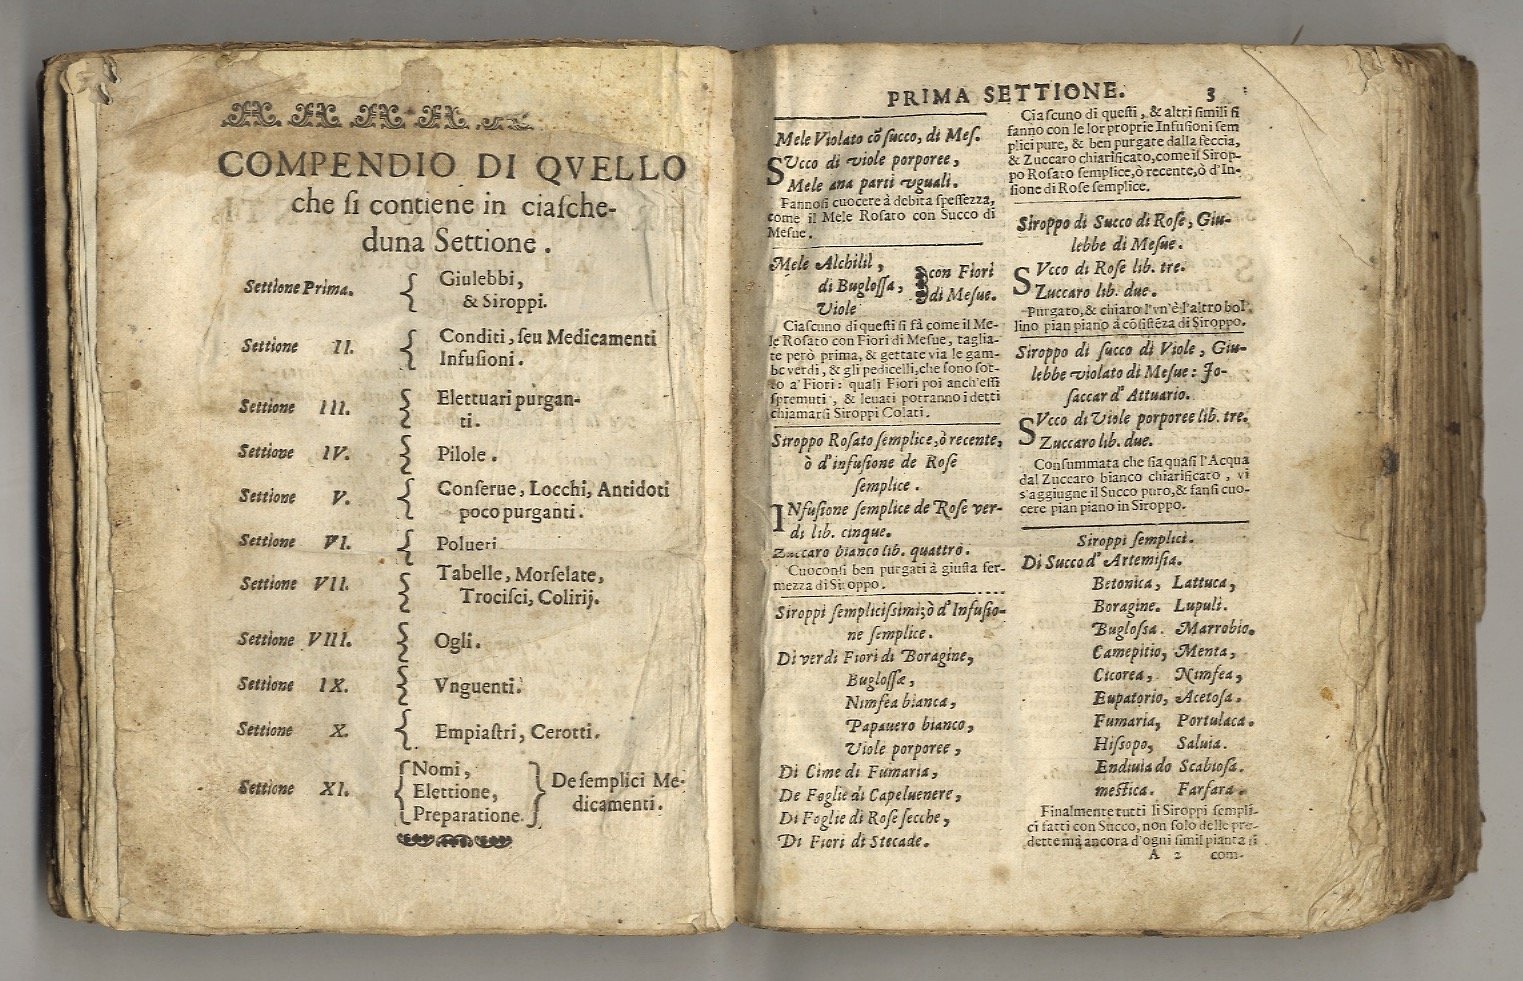 COMPENDIO DI QVELLO
che ſi contiene in ciaſche-
duna Settione.
Settione Prima. { Giulebbi,
& Siroppi.
Settione II. { Conditi, ſeu Medicamenti
Infuſioni.
Settione III. { Elettuari purgan-
ti.
Settione IV. { Pilole.
Settione V. { Conſerue, Locchi, Antidoti
poco purganti.
Settione VI. { Polueri
Settione VII. { Tabelle, Morſelate,
Trociſci, Colirij.
Settione VIII. { Ogli.
Settione IX. { Vnguenti.
Settione X. { Empiaſtri, Cerotti.
Settione XI. { Nomi,
Elettione,
Preparatione. } De ſemplici Me-
dicamenti.
PRIMA SETTIONE. 3
Mele Violato cõ ſucco, di Meſ.
SVcco di viole porporee,
Mele ana parti vguali.
Fannoſi cuocere à debita ſpeſſezza,
come il Mele Roſato con Succo di
Meſue.
Mele Alchilil,
di Bugloſſa,
Viole
} con Fiori
di Meſue.
Ciaſcuno di queſti ſi fà come il Me-
le Roſato con Fiori di Meſue, taglia-
te però prima, & gettate via le gam-
be verdi, & gli pedicelli, che ſono ſot-
to a' Fiori: quali Fiori poi anch'eſſi
ſpremuti, & leuati potranno i detti
chiamarſi Siroppi Colati.
Siroppo Roſato ſemplice, ò recente,
ò d'infuſione de Roſe
ſemplice.
INfuſione ſemplice de Roſe ver-
di lib. cinque.
Zuccaro bianco lib. quattro.
Cuoconſi ben purgati à giuſta fer-
mezza di Siroppo.
Siroppi ſempliciſsimi; ò d'Infuſio-
ne ſemplice.
Di verdi Fiori di Boragine,
Bugloſſæ,
Nimfea bianca,
Papauero bianco,
Viole porporee,
Di Cime di Fumaria,
De Foglie di Capeluenere,
Di Foglie di Roſe ſecche,
Di Fiori di Stecade.
Ciaſcuno di queſti, & altri ſimili ſi
fanno con le lor proprie Infuſioni ſem
plici pure, & ben purgate dalla feccia,
& Zuccaro chiarificato, come il Sirop-
po Roſato ſemplice, ò recente, ò d'In-
fione di Roſe ſemplice.
Siroppo di Succo di Roſe, Giu-
lebbe di Meſue.
SVcco di Roſe lib. tre.
Zuccaro lib. due.
Purgato, & chiaro l'vn' è l'altro bol
lino pian piano à cõſiſtẽza di Siroppo.
Siroppo di ſucco di Viole, Giu-
lebbe violato di Meſue: Jo-
ſaccar d'Attuario.
SVcco di Viole porporee lib. tre.
Zuccaro lib. due.
Conſummata che ſia quaſi l'Acqua
dal Zuccaro bianco chiarificato, vi
s'aggiugne il Succo puro, & fanſi cuo-
cere pian piano in Siroppo.
Siroppi ſemplici.
Di Succo d'Artemiſia.
Betonica, Lattuca,
Boragine. Lupuli.
Bugloſsa. Marrobio.
Camepitio, Menta,
Cicorea, Nimfea,
Eupatorio, Acetoſa.
Fumaria, Portulaca.
Hiſsopo, Saluia.
Endiuia do Scabioſa.
meſtica. Farfara.
Finalmente tutti li Siroppi ſempli-
ci fatti con Succo, non ſolo delle pre-
dette mà ancora d'ogni ſimil pianta ſi
A 2 com-